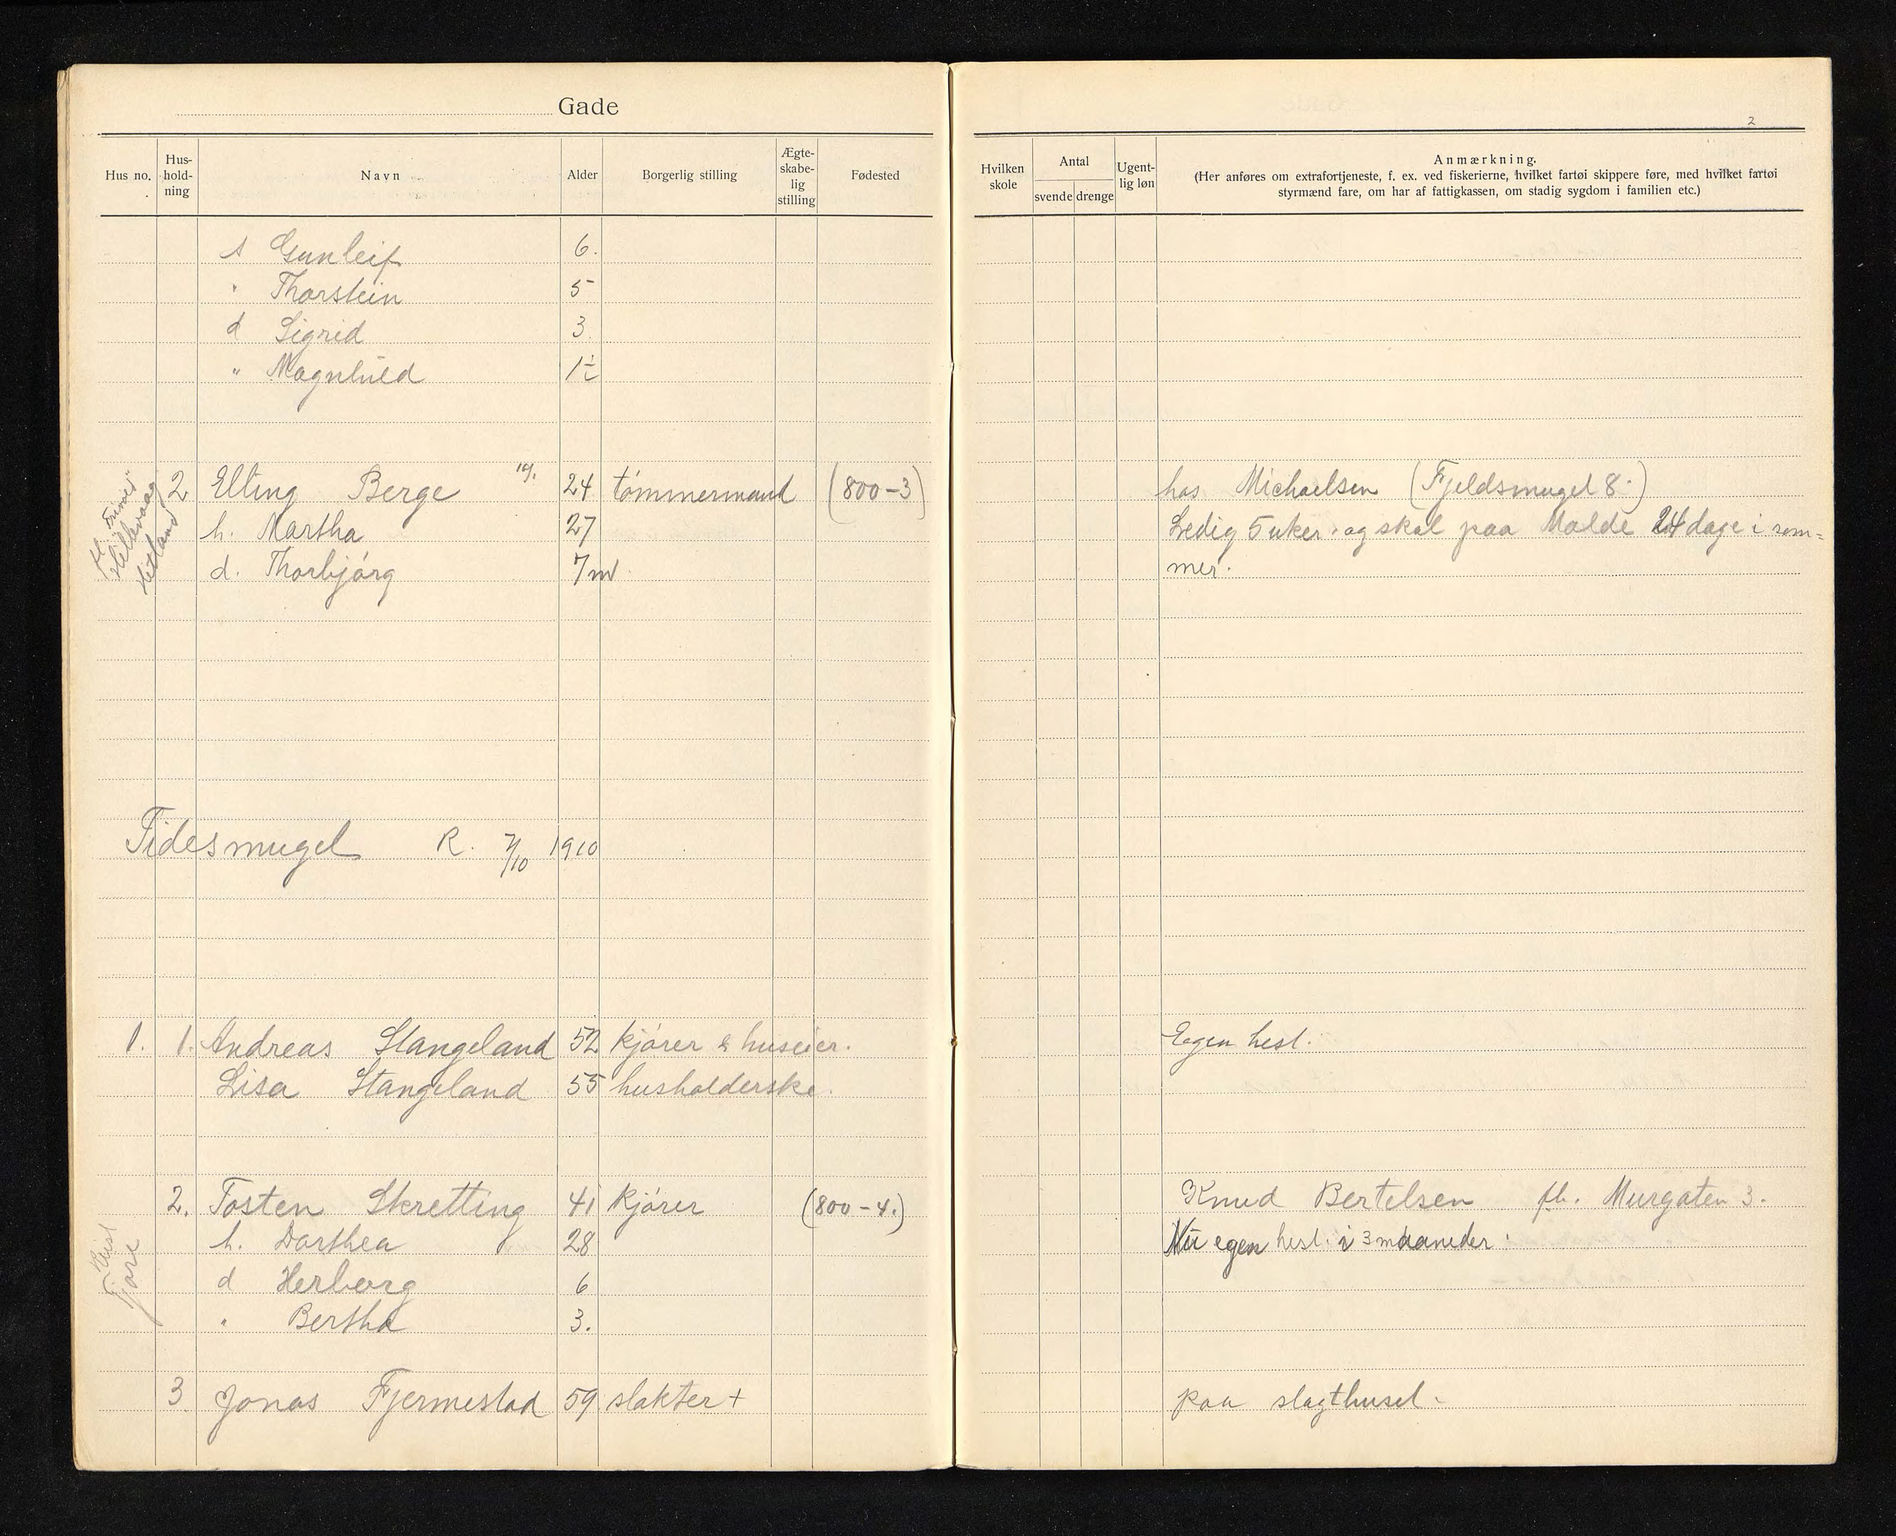 Gade
Hus no. Hus-hold-ning Navn Alder Borgerlig stilling Ægte-skabe-lig stilling Fødested
s Gunleif 6.
" Thorstein 5
d Sigrid 3.
" Magnhild 1½
2 Elling Berge 24 tømmermand (800-3)
Hillevaag
Hetland
h. Martha 27
d. Thorbjørg 7 m.
Tidesmuget R. 7/10 1910
1. 1. Andreas Stangeland 52 kjører & huseier.
Lisa Stangeland 55 husholderske.
2. Tosten Skretting 41 kjører (800-4.)
h. Dorthea 28
d Herborg 6
" Bertha 3.
3 Jonas Fjermestad 59 slakter +
2
Hvilken skole Antal svende drenge Ugent-lig løn Anmærkning.
(Her anføres om extrafortjeneste, f. ex. ved fiskerierne, hvilket fartøi skippere føre, med hvilket fartøi
styrmænd fare, om har af fattigkassen, om stadig sygdom i familien etc.)
hos Michaelsen (Fjeldsmuget 8.)
Ledig 5 uker. og skal paa Molde 24 dage i som=
mer.
Egen hest.
Knud Bertelsen fh. Murgaten 3.
Nu egen hest. i 3 maaneder.
paa slagthuset.